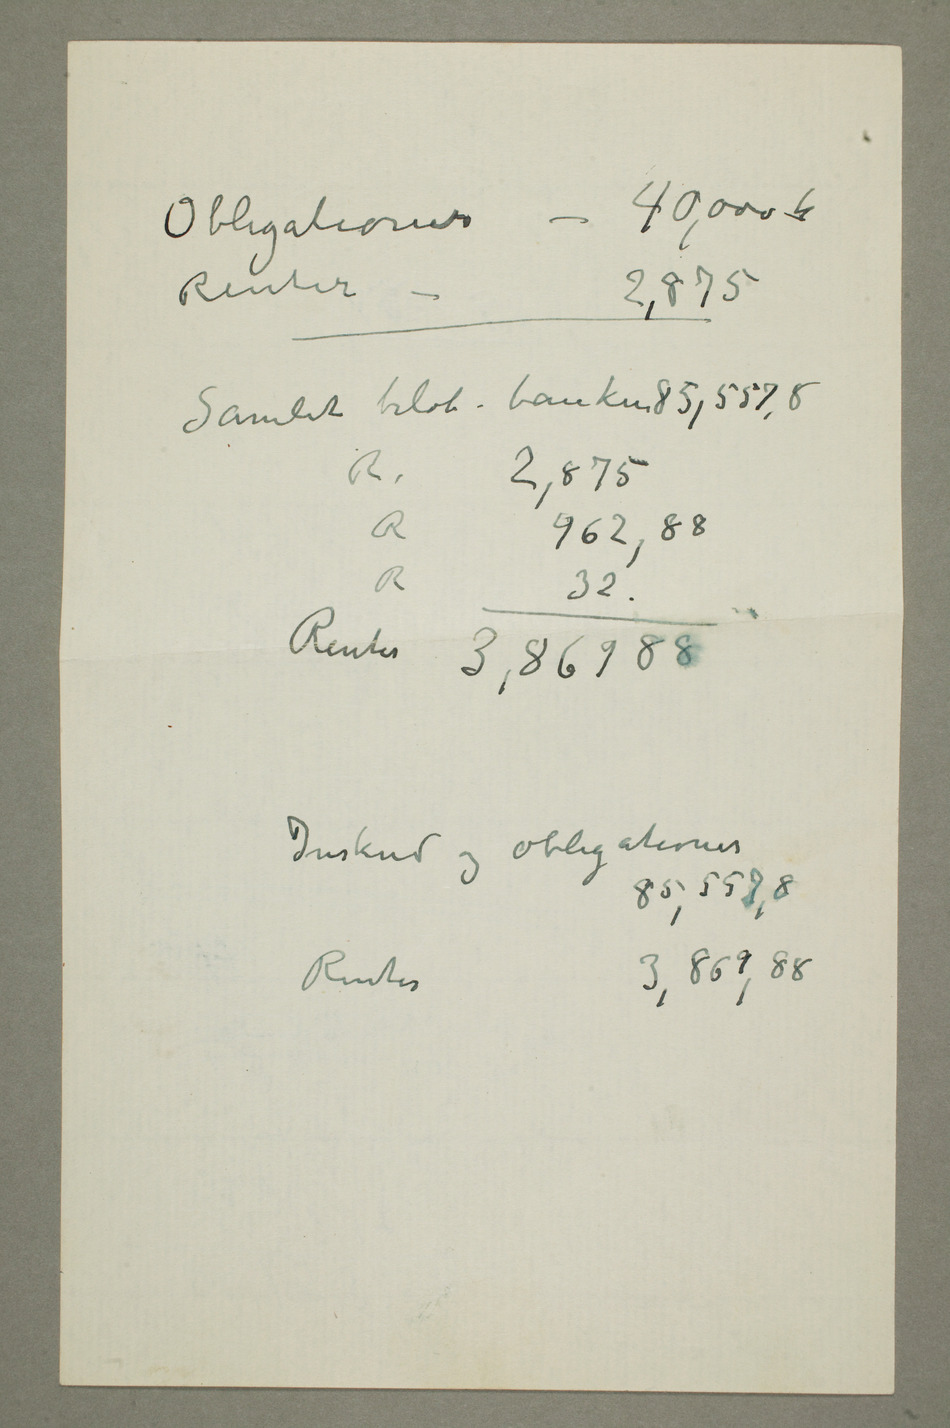 Obligationer — 40,000 k
Renter — 2,875
Samlet beløb. banken 85,557,8
R. 2,875
R 962,88
R 32.
Renter 3,86988
Inskud og obligationer
85,557,8
Renter 3,869,88